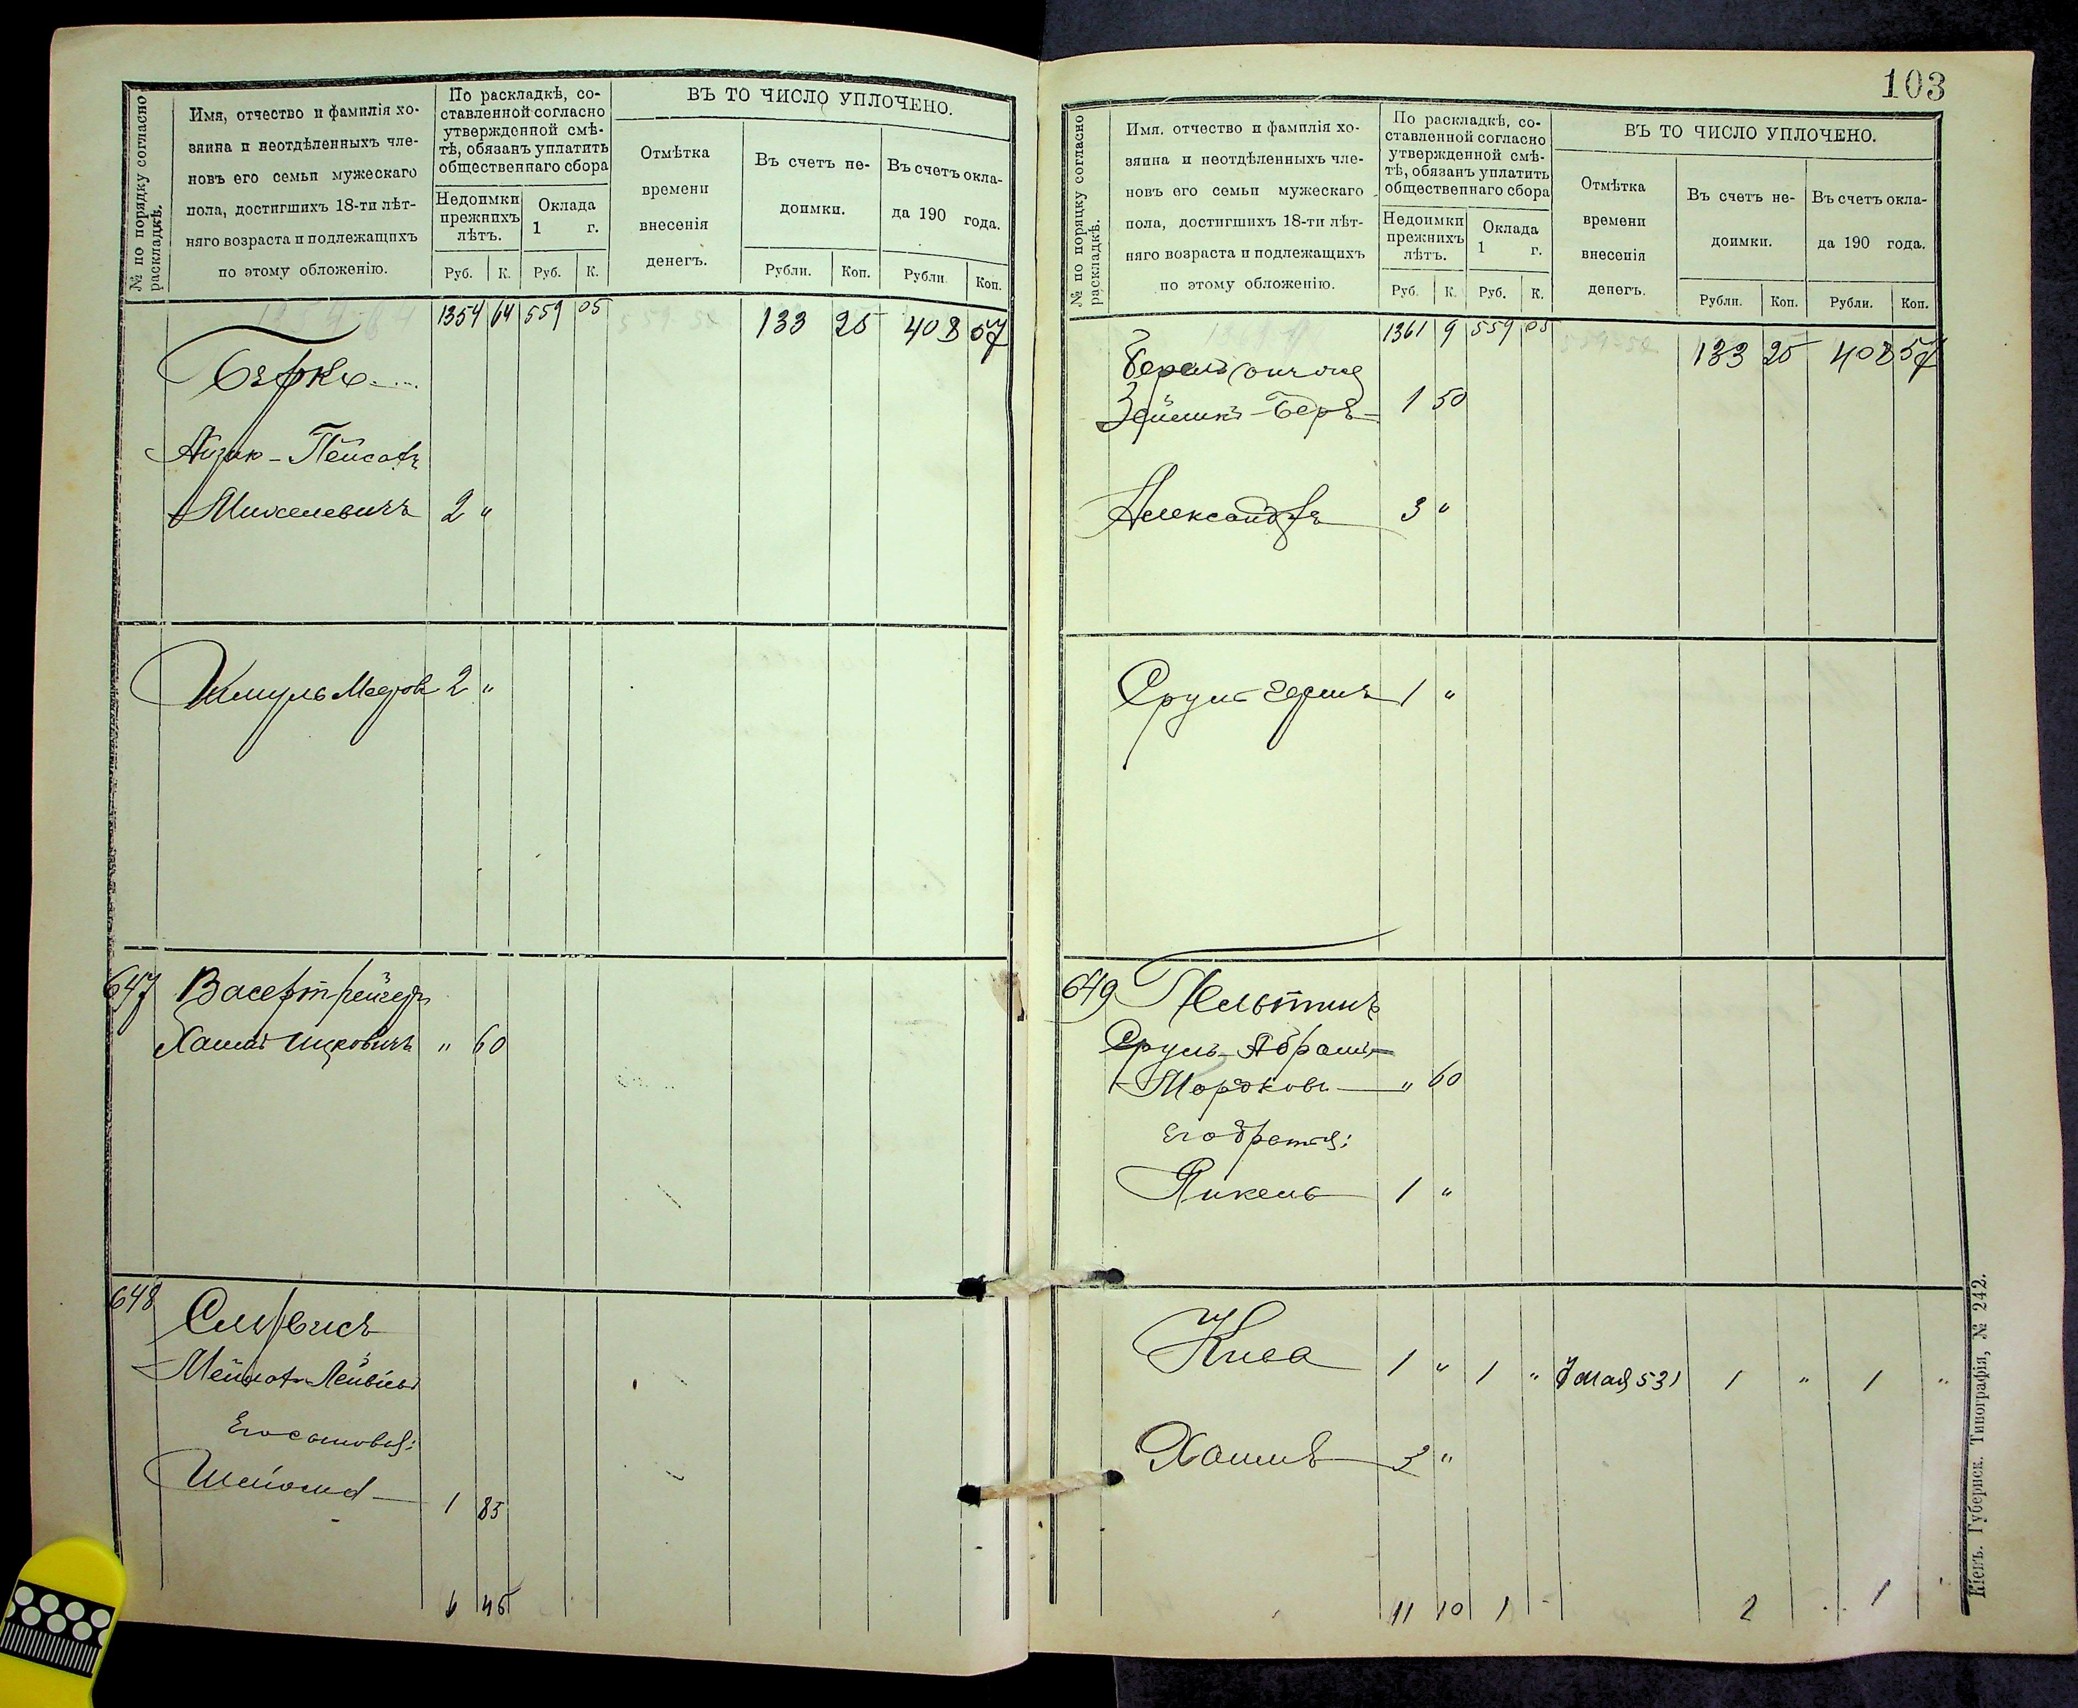 № по порядку согласно раскладкѣ.
Имя, отчество и фамилія хо-
зяина и неотдѣленныхъ чле-
новъ его семьи мужескаго
пола, достигшихъ 18-ти лѣт-
няго возраста и подлежащихъ
по этому обложенію.
По раскладкѣ, со-
ставленной согласно
утвержденной смѣ-
тѣ, обязанъ уплатить
общественнаго сбора
Недоимки
прежнихъ
лѣтъ.
Оклада
1 г.
Руб. К. Руб. К.
ВЪ ТО ЧИСЛО УПЛОЧЕНО.
Отмѣтка
времени
внесенія
денегъ.
Въ счетъ не-
доимки.
Въ счетъ окла-
да 190 года.
Рубли. Коп. Рубли Коп.
1354 64 559 05 133 25 408 57
Берко
Айзик-Пейсахъ
2 "
Шмуль 2 "
647
Хаимъ Ицковичъ " 60
648
Его сыновья:
1 85
6 45
103
№ по порядку согласно раскладкѣ.
Имя, отчество и фамилія хо-
зяина и неотдѣленныхъ чле-
новъ его семьи мужескаго
пола, достигшихъ 18-ти лѣт-
няго возраста и подлежащихъ
по этому обложенію.
По раскладкѣ, со-
ставленной согласно
утвержденной смѣ-
тѣ, обязанъ уплатить
общественнаго сбора
Недоимки
прежнихъ
лѣтъ.
Оклада
1 г.
Руб. К. Руб. К.
ВЪ ТО ЧИСЛО УПЛОЧЕНО.
Отмѣтка
времени
внесенія
денегъ.
Въ счетъ не-
доимки.
Въ счетъ окла-
да 190 года.
Рубли. Коп. Рубли. Коп.
1361 9 559 05 133 25 408 57
Зейликъ-Беръ 1 50
Александръ 3 "
Сруль Гершъ 1 "
649
Сруль-Абрамъ
Мордковъ " 60
Его братья:
Янкель 1 "
Кива 1 " 1 " 7 мая 531 1 " 1 "
Хаимъ 3 "
11 10 1 - 2 1
Кіевъ. Губернск. Типографія, № 242.